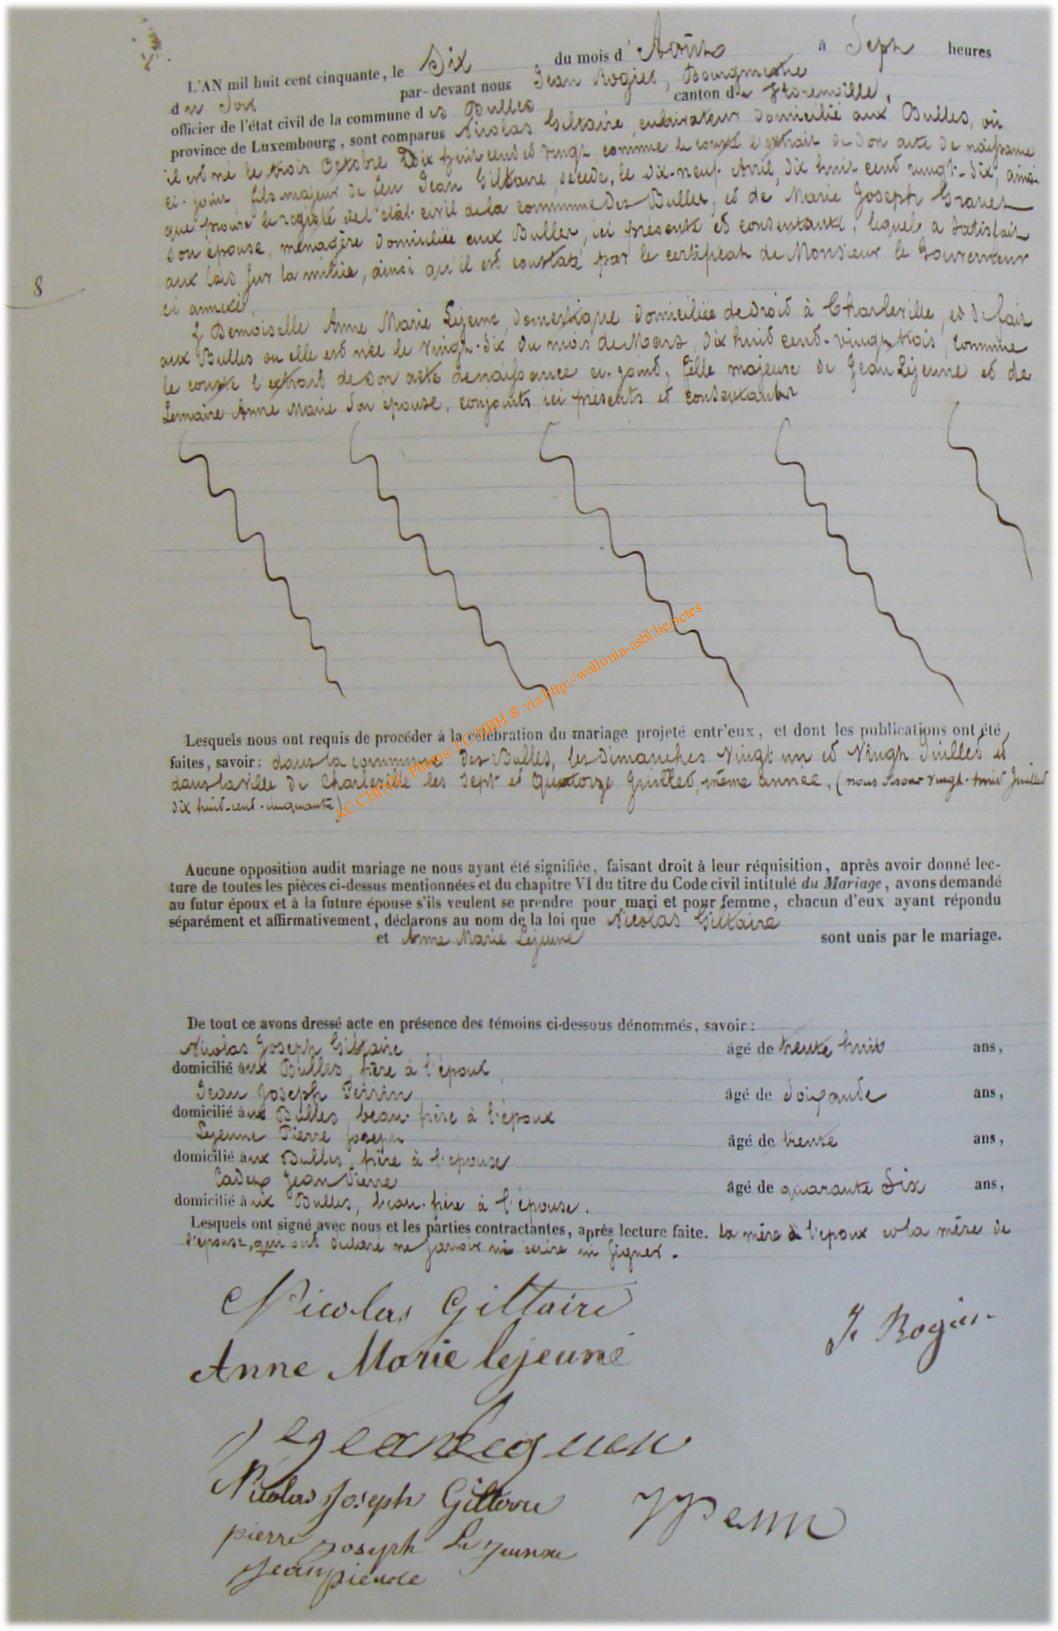 L'AN mil huit cent cinquante, le Six du mois d' Août à Sept heures
du Soir par-devant nous Jean Rogier, Bourgmestre
officier de l'état civil de la commune des Bulles canton de Florenville,
province de Luxembourg, sont comparus Nicolas Giltaire, cultivateur domicilié aux Bulles, où
il est né le trois Octobre Dix huit cent et vingt, comme le conste l'extrait de son acte de naissance
ci-joint, fils majeur de feu Jean Giltaire, décédé, le dix-neuf Avril, dix huit cent vingt-dix, ainsi
que prouve le registre de l'état-civil de la commune des Bulles, et de Marie Joseph
son épouse, ménagère domiciliée aux Bulles, ici présente et consentante, lequel a satisfait
aux lois sur la milice, ainsi qu'il est constaté par le certificat de Monsieur le Gouverneur
ci annexé.
8
& Demoiselle Anne Marie Lejeune, domestique domiciliée de droit à Charleville, et de fait
aux Bulles ou elle est née le vingt-six du mois de Mars, dix huit cent-vingt trois, comme
le conste l'extrait de son acte de naissance ci-joint, fille majeure de Jean Lejeune et de
Lemaire Anne Marie son épouse, conjoints, ici présents et consentants
Lesquels nous ont requis de procéder à la célébration du mariage projeté entr'eux, et dont les publications ont été
faites, savoir: dans la commune des Bulles, les dimanches Vingt un et Vingh Juillet et
dans la ville de Charleville les sept et quatorze Juillet, même année, (nous disons vingt-huit Juillet
dix huit-cent-cinquante)
XC CHINY, Photos I via http://wallonia-asbl.be/actes
Aucune opposition audit mariage ne nous ayant été signifiée, faisant droit à leur réquisition, après avoir donné lec-
ture de toutes les pièces ci-dessus mentionnées et du chapitre VI du titre du Code civil intitulé du Mariage, avons demandé
au futur époux et à la future épouse s'ils veulent se prendre pour mari et pour femme, chacun d'eux ayant répondu
séparément et affirmativement, déclarons au nom de la loi que Nicolas Giltaire
et Anne Marie Lejeune sont unis par le mariage.
De tout ce avons dressé acte en présence des témoins ci-dessous dénommés, savoir:
Nicolas Joseph Giltaire âgé de trente huit ans,
domicilié aux Bulles, frère à l'époux,
Jean Joseph Perrin âgé de soixante ans,
domicilié aux Bulles, beau-frère à l'époux
Lejeune Pierre Joseph âgé de trente ans,
domicilié aux Bulles, frère à l'épouse
Jean Pierre âgé de quarante six ans,
domicilié aux Bulles, beau-frère à l'épouse.
Lesquels ont signé avec nous et les parties contractantes, après lecture faite. la mère à l'époux et la mère de
l'épouse, qui ont déclaré ne savoir ni écrire ni signer.
Nicolas Giltaire
J. Rogier
Anne Marie lejeune
Nicolas Joseph Giltaire
pierre joseph Lejeune
jean pierre